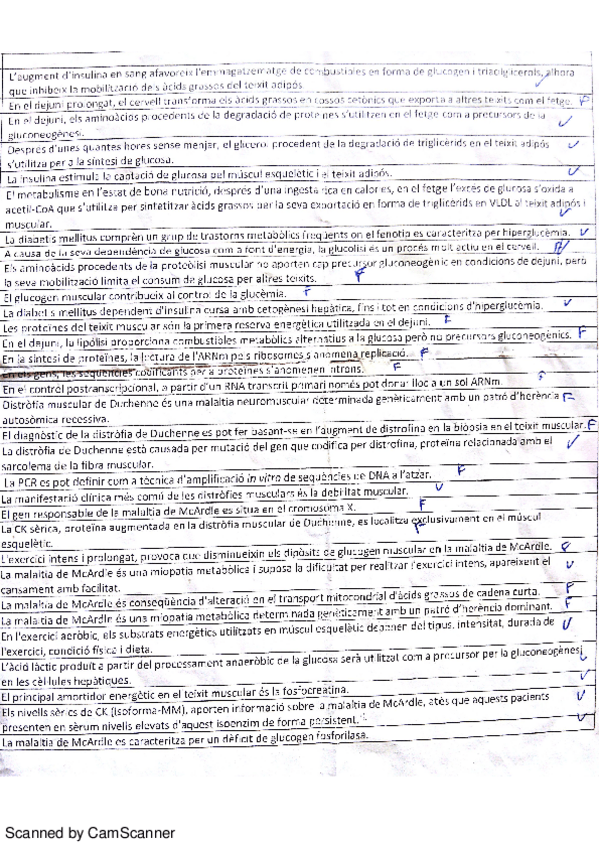 L'augment d'insulina en sang afavoreix l'emmagatzematge de combustibles en forma de glucogen i triacilglicerols, alhora
que inhibeix la mobilització dels àcids grassos del teixit adipós.
En el dejuni prolongat, el cervell transforma els àcids grassos en cossos cetònics que exporta a altres teixits com el fetge. F
En el dejuni, els aminoàcids procedents de la degradació de proteïnes s'utilitzen en el fetge com a precursors de la
gluconeogènesi.
Després d'unes quantes hores sense menjar, el glicerol procedent de la degradació de triglicèrids en el teixit adipós
s'utilitza per a la síntesi de glucosa.
La insulina estimula la captació de glucosa pel múscul esquelètic i el teixit adipós.
El metabolisme en l'estat de bona nutrició, després d'una ingesta rica en calories, en el fetge l'excés de glucosa s'oxida a
acetil-CoA que s'utilitza per sintetitzar àcids grassos per la seva exportació en forma de triglicèrids en VLDL al teixit adipós i
muscular.
La diabetis mellitus comprèn un grup de trastorns metabòlics freqüents on el fenotip es caracteritza per hiperglucèmia. V
A causa de la seva dependència de glucosa com a font d'energia, la glucòlisi és un procés molt actiu en el cervell.
Els aminoàcids procedents de la proteòlisi muscular no aporten cap precursor gluconeogènic en condicions de dejuni, però
la seva mobilització limita el consum de glucosa per altres teixits. F
El glucogen muscular contribueix al control de la glucèmia. F
La diabetis mellitus dependent d'insulina cursa amb cetogènesi hepàtica, fins i tot en condicions d'hiperglucèmia. V
Les proteïnes del teixit muscular són la primera reserva energètica utilitzada en el dejuni. F
En el dejuni, la lipòlisi proporciona combustibles metabòlics alternatius a la glucosa però no precursors gluconeogènics. F
En la síntesi de proteïnes, la lectura de l'ARNm pels ribosomes s'anomena replicació. F
En els gens, les seqüències codificants per a proteïnes s'anomenen introns. F
En el control postranscripcional, a partir d'un RNA transcrit primari només pot donar lloc a un sol ARNm.
Distròfia muscular de Duchenne és una malaltia neuromuscular determinada genèticament amb un patró d'herència F
autosòmica recessiva.
El diagnòstic de la distròfia de Duchenne es pot fer basant-se en l'augment de distrofina en la biòpsia en el teixit muscular. F
La distròfia de Duchenne està causada per mutació del gen que codifica per distrofina, proteïna relacionada amb el
sarcolema de la fibra muscular.
La PCR es pot definir com a tècnica d'amplificació in vitro de seqüències de DNA a l'atzar. F
La manifestació clínica més comú de les distròfies musculars és la debilitat muscular. V
El gen responsable de la malaltia de McArdle es situa en el cromosoma X. F
La CK sèrica, proteïna augmentada en la distròfia muscular de Duchenne, es localitza exclusivament en el múscul
esquelètic. F
L'exercici intens i prolongat, provoca que disminueixin els dipòsits de glucogen muscular en la malaltia de McArdle.
La malaltia de McArdle és una miopatia metabòlica i suposa la dificultat per realitzar l'exercici intens, apareixent el
cansament amb facilitat. V
La malaltia de McArdle és conseqüència d'alteració en el transport mitocondrial d'àcids grassos de cadena curta. F
La malaltia de McArdle és una miopatia metabòlica determinada genèticament amb un patró d'herència dominant. F
En l'exercici aeròbic, els substrats energètics utilitzats en múscul esquelètic depenen del tipus, intensitat, durada de V
l'exercici, condició física i dieta.
L'àcid làctic produït a partir del processament anaeròbic de la glucosa serà utilitzat com a precursor per la gluconeogènesi
en les cèl·lules hepàtiques.
El principal amortidor energètic en el teixit muscular és la fosfocreatina.
Els nivells sèrics de CK (isoforma-MM), aporten informació sobre la malaltia de McArdle, atès que aquests pacients
presenten en sèrum nivells elevats d'aquest isoenzim de forma persistent.
La malaltia de McArdle es caracteritza per un dèficit de glucogen fosforilasa.
Scanned by CamScanner